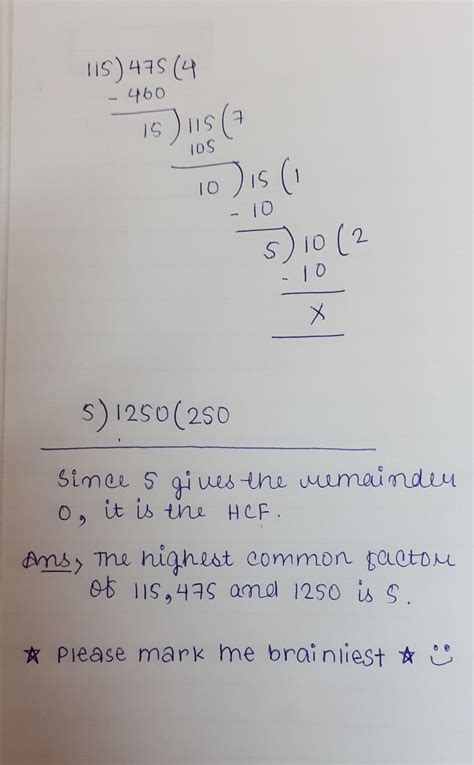 115)475(4
- 460
15)115(7
105
10)15(1
- 10
5)10(2
- 10
x
5)1250(250
Since 5 gives the remainder
0, it is the HCF.
Ans, The highest common factor
of 115,475 and 1250 is 5.
☆ Please mark me brainliest ☆ ☺